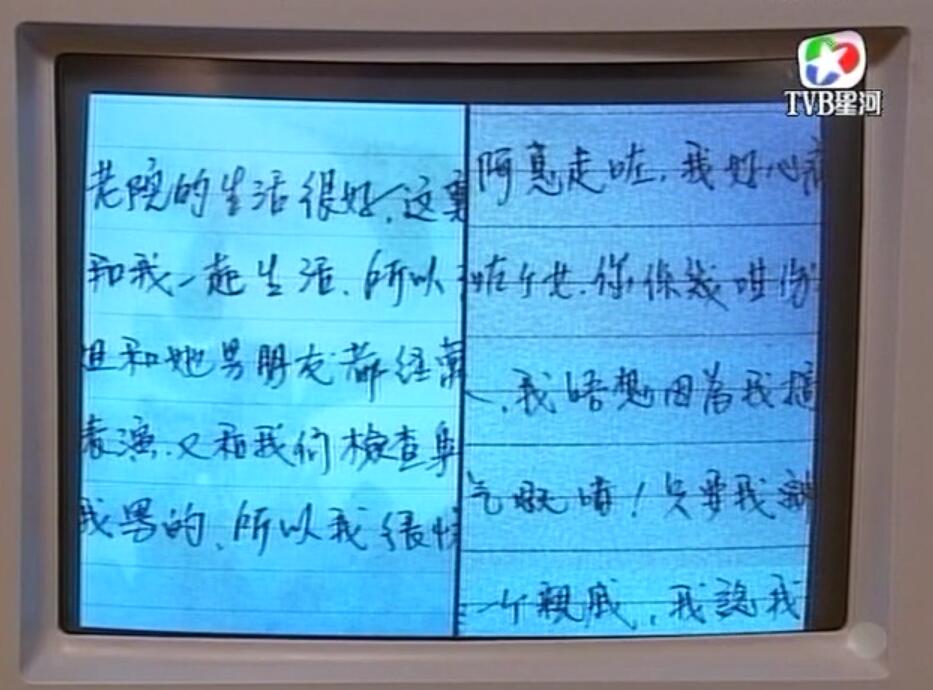 TVB星河
老院的生活很好，这裏
和我一起生活，所以
姐和她男朋友都经常
表演，又和我们檢查身
我男的，所以我很快
阿惠走咗，我好心痛
咗个女，你
，我唔想因為我搞
气嘅啫！只要我
一个親戚，我認我